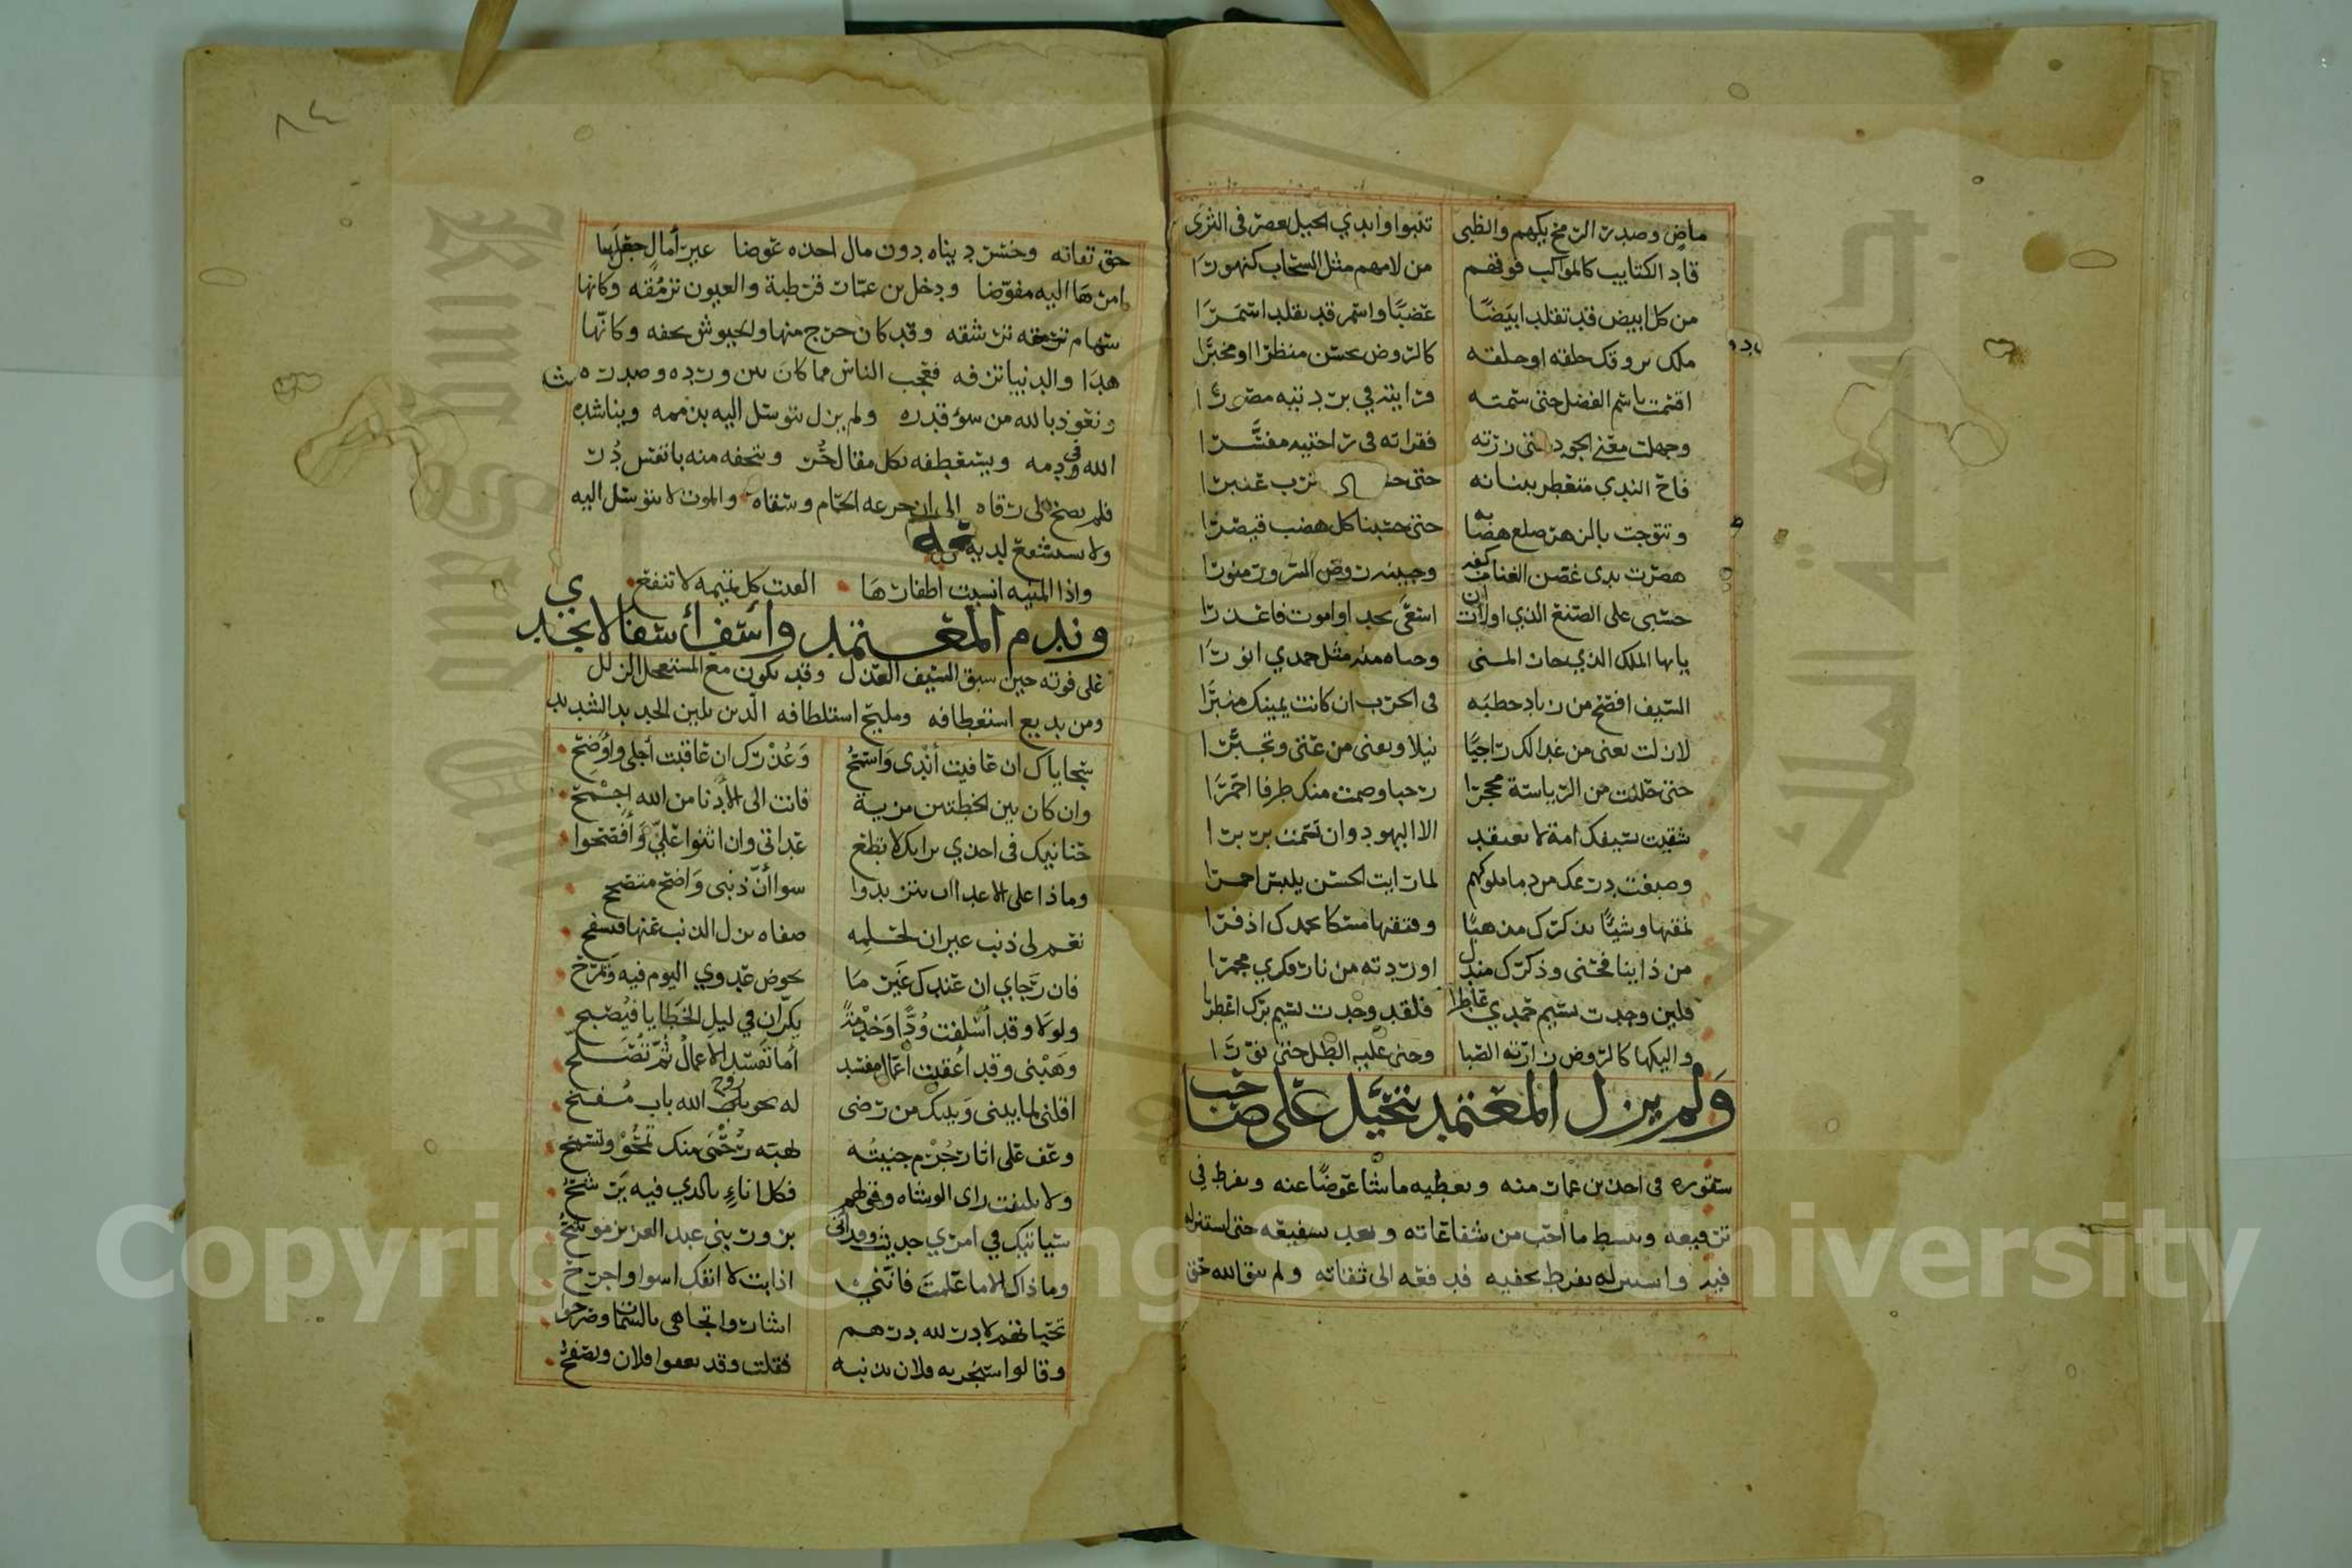 ماض وصدر الرمح يكهم والظبى تنبوا وايدي الخيل تعصر في الثرى
قاد الكتايب كالمواكب فوقهم من لامهم مثل السحاب كنهورا
من كل ابيض قد تقلد ابيضا عضبا واسمر قد تقلد اسمرا
ملك يروقك خلقه او خلقه كالروض يحسن منظرا او مخبرا
اقسمت باسم الفضل حتى شمته فرايته في بردتيه مصورا
وجهلت معنى الجود حتى زرته فقراته في راحتيه مفسرا
فاح الندى متعطر ببنانه حتى ترب عنبرا
وتتوجت بالزهر صلع هضابه حتى حسبنا كل هضب قيصرا
هصرت يدي غصن الغنا من كفه وجنيت روض السرور منورا
حسبي على الصنع الذي اولاه ان اسعى بجد او اموت فاعذرا
يايها الملك الذي حاز المنى وحباه منه مثل حمدي انورا
السيف افصح من زياد خطبه في الحرب ان كانت يمينك منبرا
لازلت تغنى من غدا لك راجيا نيلا وتفنى من عتى وتجبرا
حتى حللت من الرياسة محجرا رحبا وضمت منك طرفا احورا
شقيت بسيفك امة لا تعتقد الا اليهود وان تسمت بربرا
وصبغت درعك من دما ملوكهم لما رايت الحسن يلبس احمرا
نمقتها وشيا بذكرك مذهبا وفتقتها مسكا بحمدك اذفرا
من ذا ينافحني وذكرك مندل اوردته من نار فكري مجمرا
فلين وجدت نسيم حمدي عاطرا فلقد وجدت نسيم برك اعطرا
واليكها كالروض زارته الصبا وحنى عليه الطل حتى نورا
ولم يزل المعتمد يتخيل على صاحب
سقوره في احد بن عمار منه ويعطيه ما شا عوضا عنه ويفرط في
ترفيعه ويبسط ما احب من شفاعاته ويعد بشفيعه حتى استنزله
فيه واستنزله بفرط بحفيه فدفعه الى ثقاته ولم يتق الله حق
٨٤
حق تقاته وخسر ديناه دون مال اخذه عوضا غير آمال جعل لها
امرها اليه مفوضا ودخل بن عمار قرطبة والعيون ترمقه وكانها
سهام ترشقه وقد كان خرج منها والجيوش تحفه وكانها
هدا والدنيا تزفه فعجب الناس مما كان بين ورده وصدره
ونعوذ بالله من سؤ قدره ولم يزل يتوسل اليه بذممه ويناشده
الله في دمه ويستعطفه بكل مقال حر ويتحفه منه بانفس در
فلم يصخ الى رقاه الى ان جرعه الحمام وسقاه والموت لا يتوسل اليه
ولا يستشفع لديه
واذا المنيه انشبت اظفارها الفيت كل تميمه لا تنفع
وندم المعتمد وأسف أسفا لا يجدي
على فوته حين سبق السيف العذل وقد يكون مع المستعجل الزلل
ومن بديع استعطافه ومليح استلطافه الذي يلين الحديد الشديد
سجاياك ان عافيت أندى واسمح وعذرك ان عاقبت أجلى وأوضح
وان كان بين الخطتين مزية فانت الى الأدنا من الله اجنح
حنانيك في اخذي برايك لا تطع عداتي وان اثنوا علي وأفصحوا
وماذا على الاعدا ان يتزيدوا سوا أن ذنبي واضح متصحح
نعم لي ذنب غير ان لحلمه صفاه يزل الذنب عنها فيسفح
فان رجاي ان عندك غير ما يخوض عدوي اليوم فيه ويمرح
ولولا وقد أسلفت ودا وخدمة يكران في ليل الخطايا فيصبح
وهبني وقد أعقبت أعمال مفسد أما تفسد الاعمال ثم تصلح
اقلني لما بيني وبينك من رضى له نحو روح الله باب مفتح
وعف على اثار جرم جنيته بهبة رحمى منك تمحو وتسمح
ولا يلتفت راي الوشاه وقولهم فكل اناء بالذي فيه يرشح
سياتيك في امري حديث وقد اتى بزور بني عبد العزيز موشح
وما ذاك الا ما علمت فانني اذا بت لا انفك اسوا واجرح
تخيلتهم لا در لله درهم اشاروا تجاهي بالشمات وصرحوا
وقالوا سيجزيه فلان بذنبه فقلت وقد يعفوا فلان ويصفح
Copyright © King Saud University